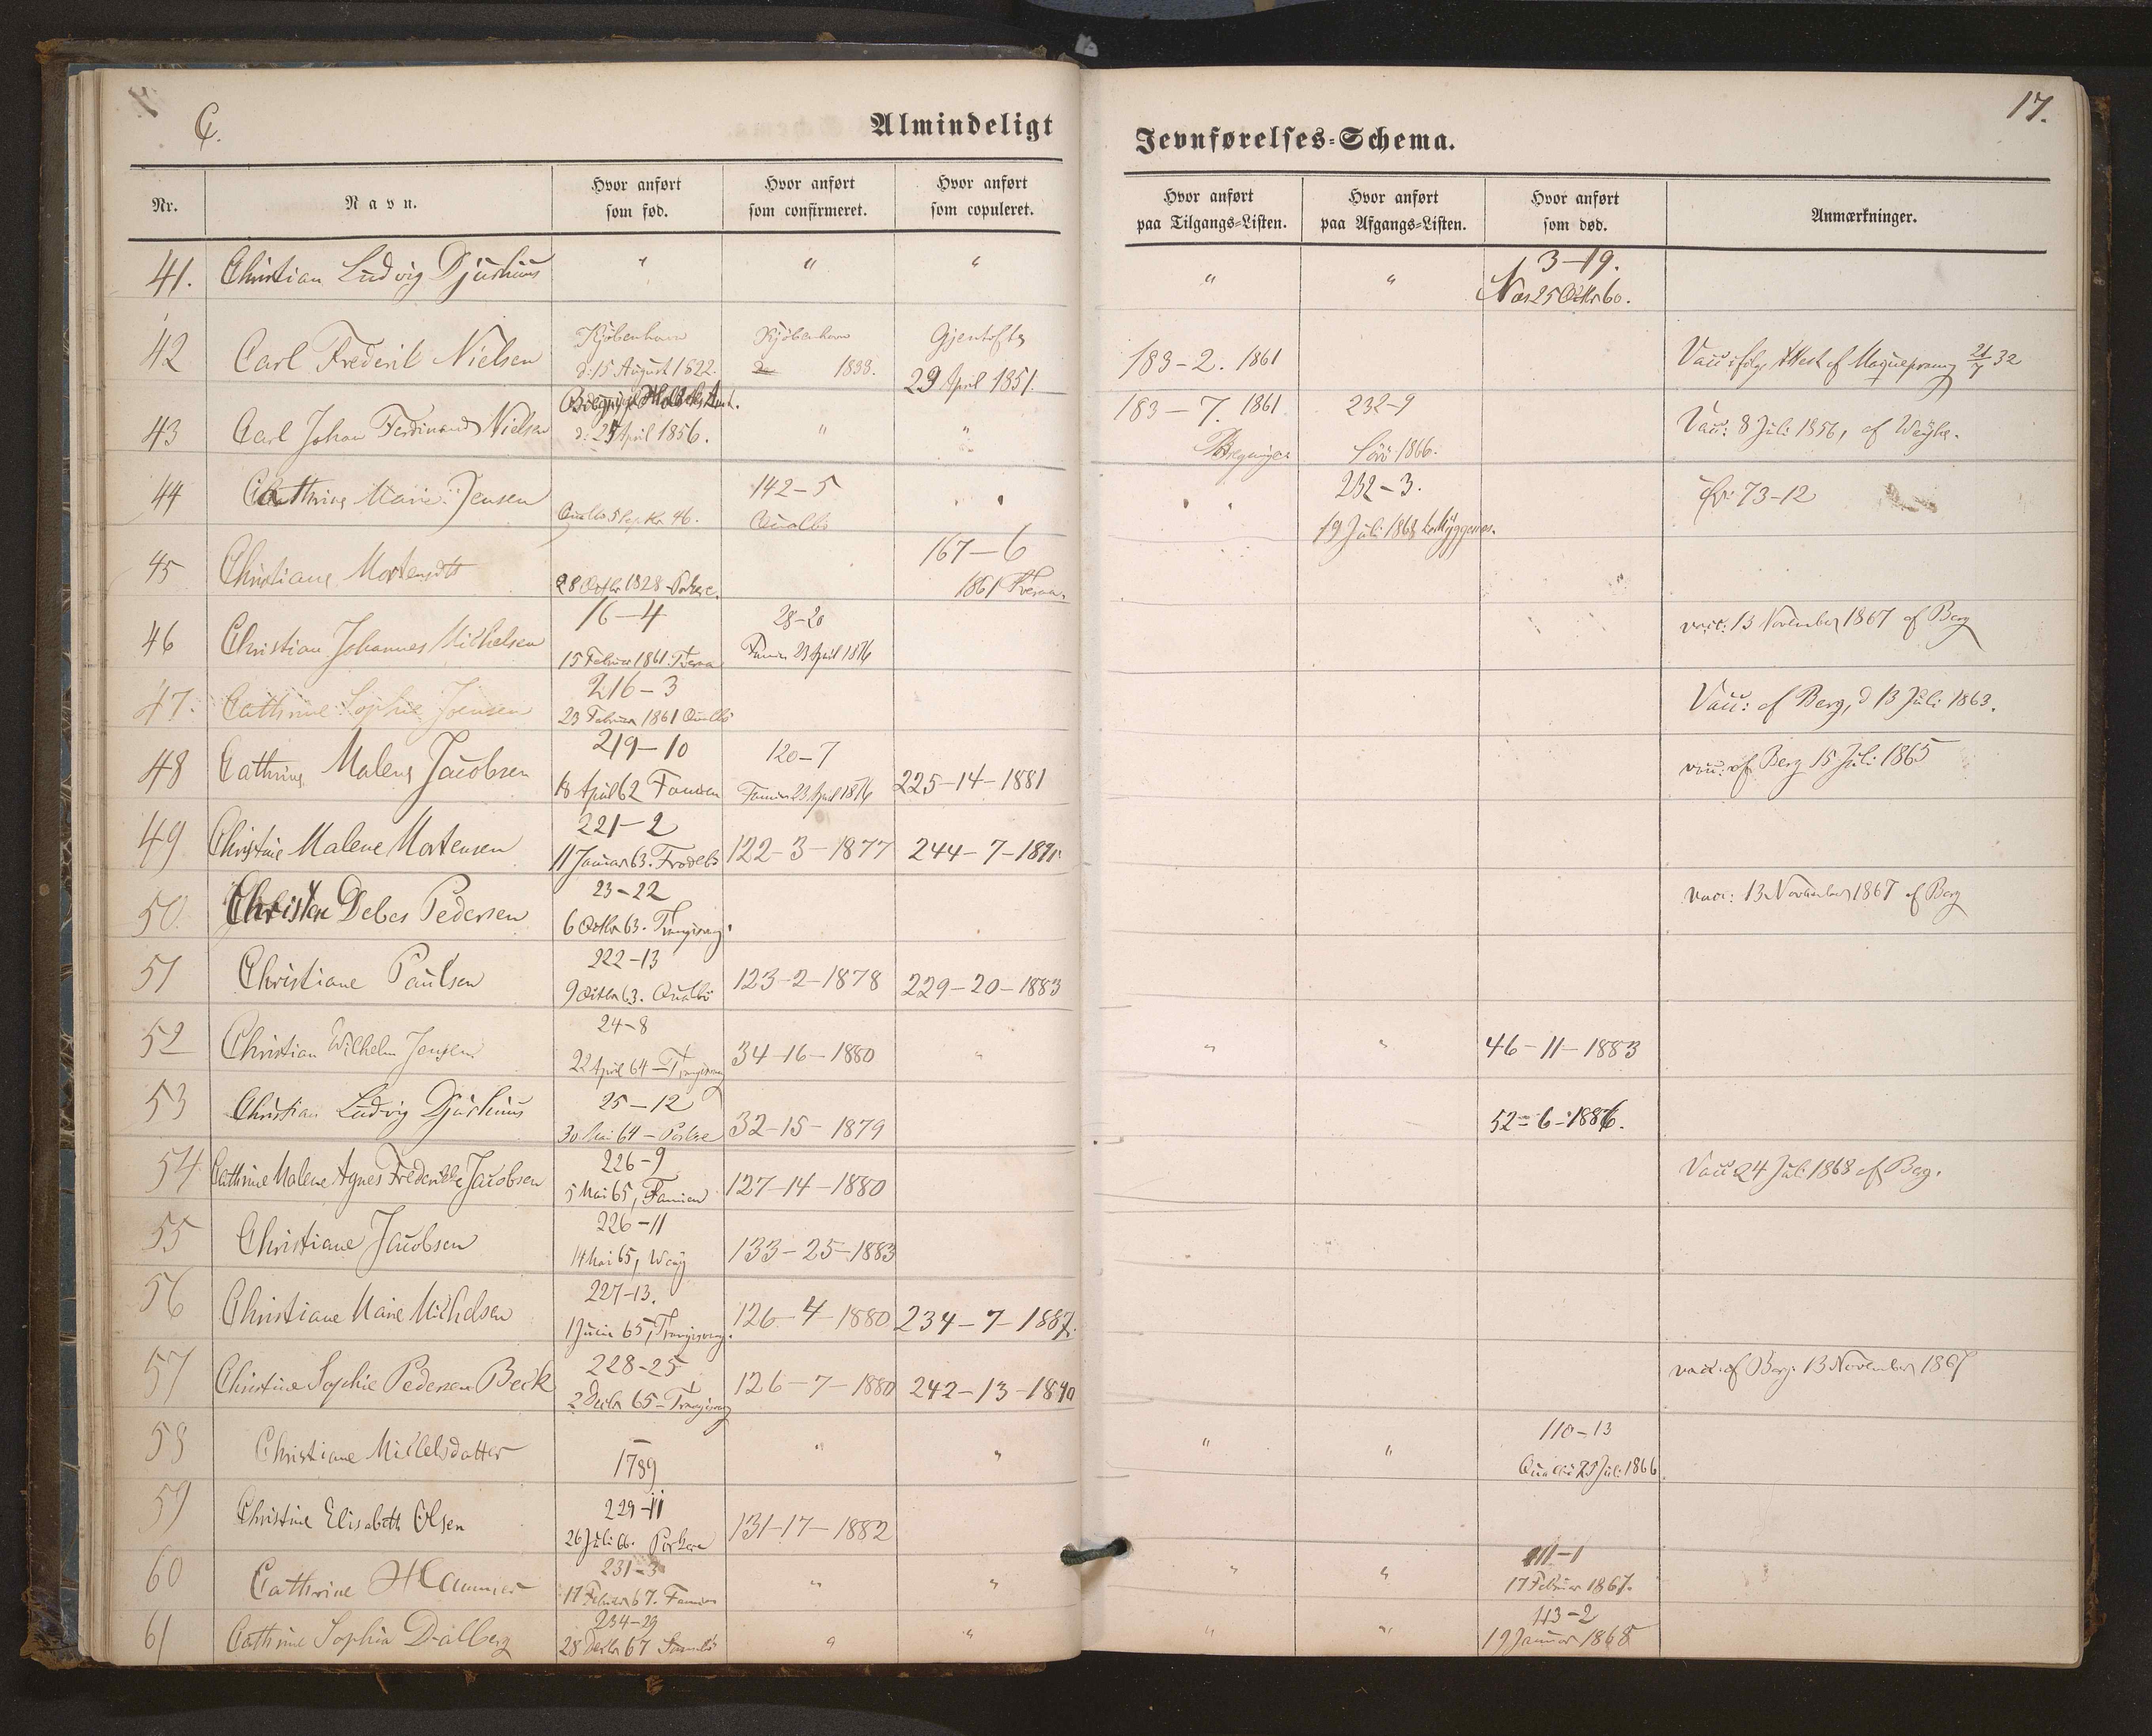 C.
17.
Almindeligt Jevnførelses-Schema.
Nr.
Navn.
Hvor anført som fød.
Hvor anført som confirmeret.
Hvor anført som copuleret.
Hvor anført paa Tilgangs-Listen.
Hvor anført paa Afgangs-Listen.
Hvor anført som død.
Anmærkninger.
41. Christian Ludvig Djurhuus " " " " " 3-19.
Næs 25 Octbr 60.
42 Carl Frederik Nielsen Kjöbenhavn Kjöbenhavn Gjentofte 183-2. 1861
d: 15 August 1822. 1838. 29 April 1851.
43 Carl Johan Ferdinand Nielsen d: 25 April 1856. " " 183-7. 1861 232-9 Vac: 8 Juli 1856, af
Sörö 1866.
44 Cathrine Marie Jensen Qualbö 5 Septbr 46. 142-5 Qualbö " " 232-3. 73-12
19 Juli 1868
45 Christiane Mortensdtt 28 Octbr 1828 Porkere. 167-6
1861
46 Christian Johannes Michelsen 16-4 28-20 vacc: 13 November 1867 af Berg
15 Februar 1861. Famien 23 April 1876
47. Cathrine Sophie Joensen 216-3 Vacc: af Berg, d 13 Juli 1863.
23 Februar 1861 Qualbö
48 Cathrine Malene Jacobsen 219-10 120-7 225-14-1881 vacc: af Berg 15 Juli 1865
18 April 62 Famien Famien 23 April 1876
49 Christine Malene Mortensen 221-2 122-3-1877 244-7-1891.
11 Januar 63. Frodebö
50. Christen Debes Pedersen 23-22 vacc: 13 November 1867 af Berg
6 Octbr 63. Trangisvaag.
51 Christiane Paulsen 222-13 123-2-1878 229-20-1883
9 Octbr 63. Qualbö
52 Christian Wilhelm Jensen 24-8 34-16-1880 " " " 46-11-1883
22 April 64 - Trangisvaag
53 Christian Ludvig Djurhuus 25-12 32-15-1879 52-6-1886.
30 Mai 64 - Porkere
54 Cathrine Malene Agnes Frederikke Jacobsen 226-9 127-14-1880 Vacc 24 Juli 1868 af Berg.
5 Mai 65, Famien
55 Christiane Jacobsen 226-11 133-25-1883
14 Mai 65, Waag
56 Christiane Marie Michelsen 227-13. 126-4-1880 234-7-1887.
1 Juni 65, Trangisvaag.
57 Christine Sophie Pedersen Beck 228-25 126-7-1880 242-13-1890 vacc: af Berg. 13 November 1867
2 Decbr 65 - Trangisvaag
58 Christiane Mikkelsdatter 1789 " " " " 110-13
Qualbö 29 Juli 1866
59 Christine Elisabeth Olsen 229-11 131-17-1882
26 Juli 66. Porkere
60 Cathrine Hammer 231-3 " " " " 111-1
17 Februar 67. Famien 17 Februar 1867.
61 Cathrine Sophia Dalberg 234-29 " " " " 113-2
28 Decbr 67 Sumbö 19 Januar 1868